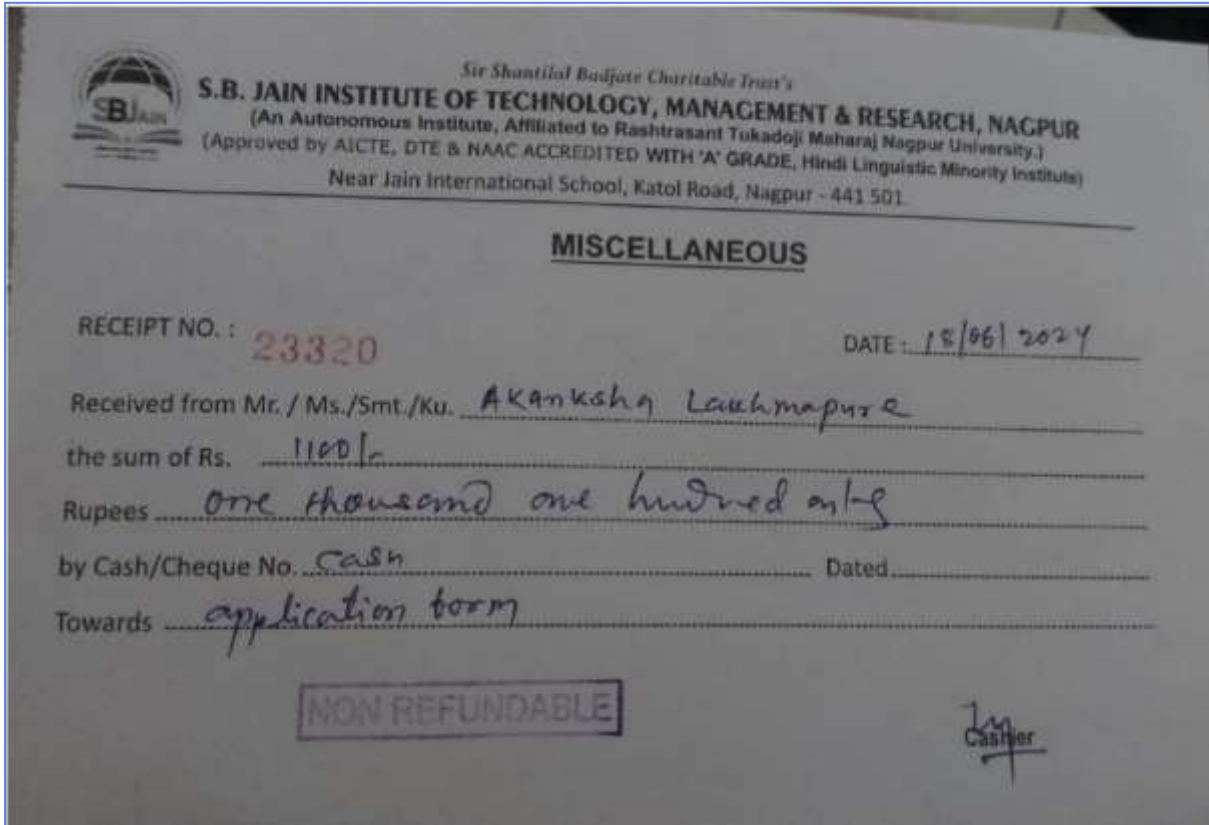 SBJAIN
Sir Shantilal Badjate Charitable Trust's
S.B. JAIN INSTITUTE OF TECHNOLOGY, MANAGEMENT & RESEARCH, NAGPUR
(An Autonomous Institute, Affiliated to Rashtrasant Tukadoji Maharaj Nagpur University.)
(Approved by AICTE, DTE & NAAC ACCREDITED WITH 'A' GRADE, Hindi Linguistic Minority Institute)
Near Jain International School, Katol Road, Nagpur - 441 501.
MISCELLANEOUS
RECEIPT NO. : 23320 DATE : 18/06/2024
Received from Mr. / Ms./Smt./Ku. Akanksha
the sum of Rs. 1100/-
Rupees one thousand one hundred only
by Cash/Cheque No. Cash Dated
Towards application form
NON REFUNDABLE
Cashier